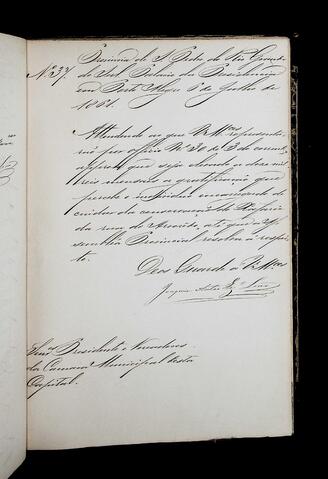 Nº 37.
Provincia de S. Pedro do Rio Grande
do Sul Palacio da Presidencia
em Porto Alegre 6 de Julho de
1861.
Attendendo ao que V. M.ces representa-
rão por officio Nº 30 de 3 do corrente,
approvo que seja elevada a dous mil
reis mensaes a gratificação que
percebe o individuo encarregado de
cuidar da conservação do
da rua do Arvoredo, até que a As-
sembléa Provincial resolva a respei-
to.
Deos Guarde a V. M.ces
Joaquim Antão Fz. Leão
Snr.es Presidente e Vereadores
da Camara Municipal desta
Capital.